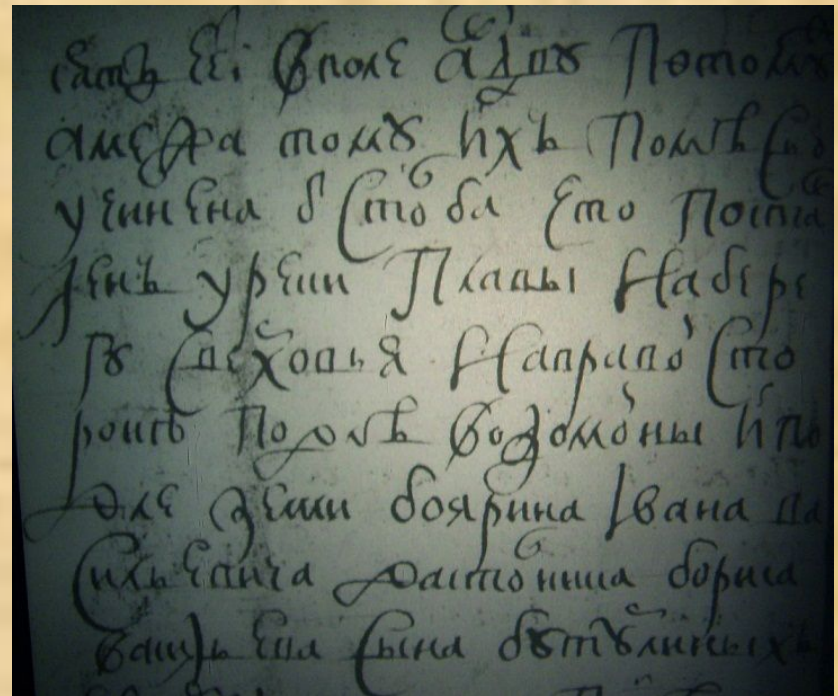 сать чеі в поле а в дву потому ж
а межа тому ихъ помѣсю
учинена ѿ столба что поста
ленъ у речки Плавы на бере
гу с верховья на правой сто
ронѣ подлѣ водомоины и по
дле земли боярина Iвана ва
сильевича да столника бориса
васильева сына бутурлиныхъ